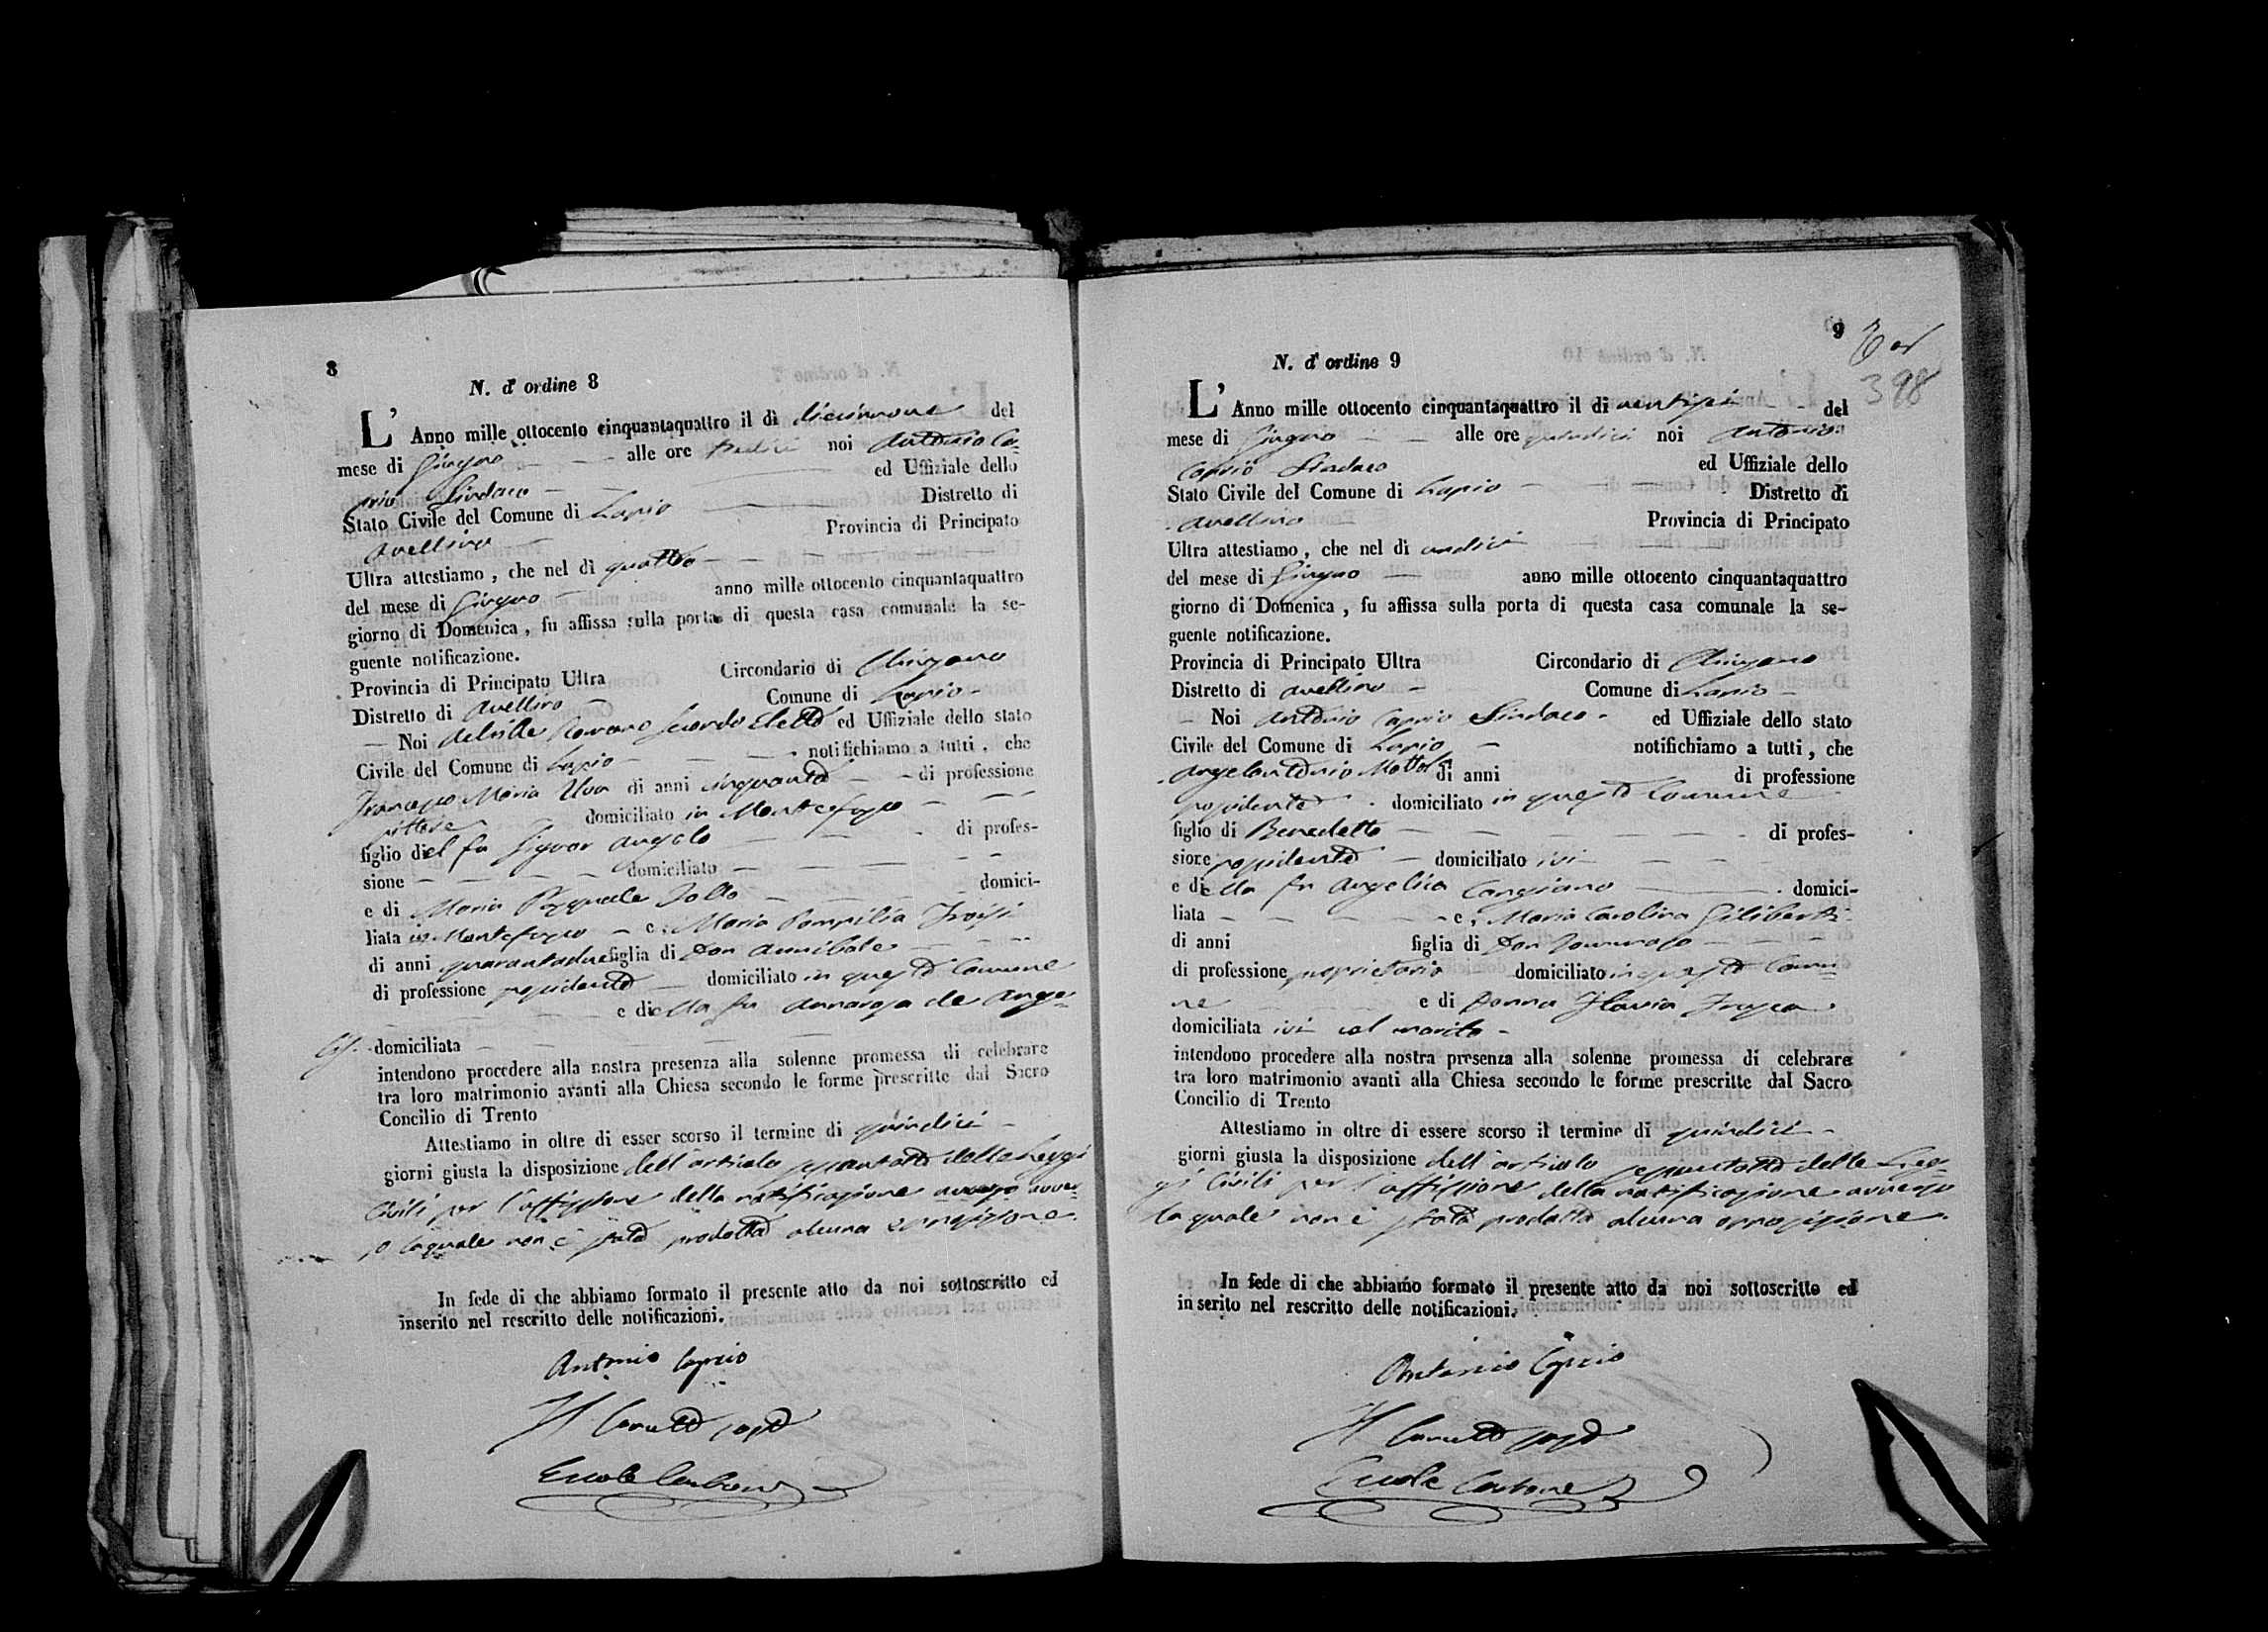 8
N. d' ordine 8
L' Anno mille ottocento cinquantaquattro il dì diciannove del
mese di Giugno alle ore tredici noi Antonio Ca-
prio Sindaco ed Uffiziale dello
Stato Civile del Comune di Lapio Distretto di
Avellino Provincia di Principato
Ultra attestiamo, che nel dì quattro
del mese di Giugno anno mille ottocento cinquantaquattro
giorno di Domenica, fu affissa sulla porta di questa casa comunale la se-
guente notificazione.
Provincia di Principato Ultra Circondario di Chiusano
Distretto di Avellino Comune di Lapio
Noi Romano Secondo Eletto ed Uffiziale dello stato
Civile del Comune di Lapio notifichiamo a tutti, che
Francesco Maria Uva di anni cinquanta di professione
pittore domiciliato in Montefusco
figlio del fu Signor Angelo di profes-
sione domiciliato
e di Maria Pasquale Tollo domici-
liata in Montefusco e, Maria Pompilia Troisi
di anni quarantadue figlia di Don Annibale
di professione possidente domiciliato in questo Comune
e della fu Annarosa de Ange-
lis domiciliata
intendono procedere alla nostra presenza alla solenne promessa di celebrare
tra loro matrimonio avanti alla Chiesa secondo le forme prescritte dal Sacro
Concilio di Trento
Attestiamo in oltre di esser scorso il termine di quindici
giorni giusta la disposizione dell'articolo sessantotto delle Leggi
Civili per l'affissione della notificazione avver-
so la quale non è stata prodotta alcuna opposizione.
In fede di che abbiamo formato il presente atto da noi sottoscritto ed
inserito nel rescritto delle notificazioni.
Antonio Caprio
Ercole Carbone
9
398
N. d' ordine 9
L' Anno mille ottocento cinquantaquattro il di ventisei del
mese di Giugno alle ore quindici noi Antonio
Caprio Sindaco ed Uffiziale dello
Stato Civile del Comune di Lapio Distretto di
Avellino Provincia di Principato
Ultra attestiamo, che nel dì undici
del mese di Giugno anno mille ottocento cinquantaquattro
giorno di Domenica, fu affissa sulla porta di questa casa comunale la se-
guente notificazione.
Provincia di Principato Ultra Circondario di Chiusano
Distretto di Avellino Comune di Lapio
Noi Antonio Caprio Sindaco ed Uffiziale dello stato
Civile del Comune di Lapio notifichiamo a tutti, che
Angelantonio Mottola di anni di professione
possidente domiciliato in questo Comune
figlio di Benedetto di profes-
sione possidente domiciliato ivi
e della fu Angelica Cangiano domici-
liata e, Maria Carolina Giliberti
di anni figlia di Don Tommaso
di professione proprietario domiciliato in questo Comu-
ne e di Donna Flavia
domiciliata ivi col marito
intendono procedere alla nostra presenza alla solenne promessa di celebrare
tra loro matrimonio avanti alla Chiesa secondo le forme prescritte dal Sacro
Concilio di Trento
Attestiamo in oltre di essere scorso il termine di quindici
giorni giusta la disposizione dell'articolo sessantotto delle Leg-
gi Civili per l'affissione della notificazione avverso
la quale non è stata prodotta alcuna opposizione.
In fede di che abbiamo formato il presente atto da noi sottoscritto ed
inserito nel rescritto delle notificazioni.
Antonio Caprio
Ercole Carbone